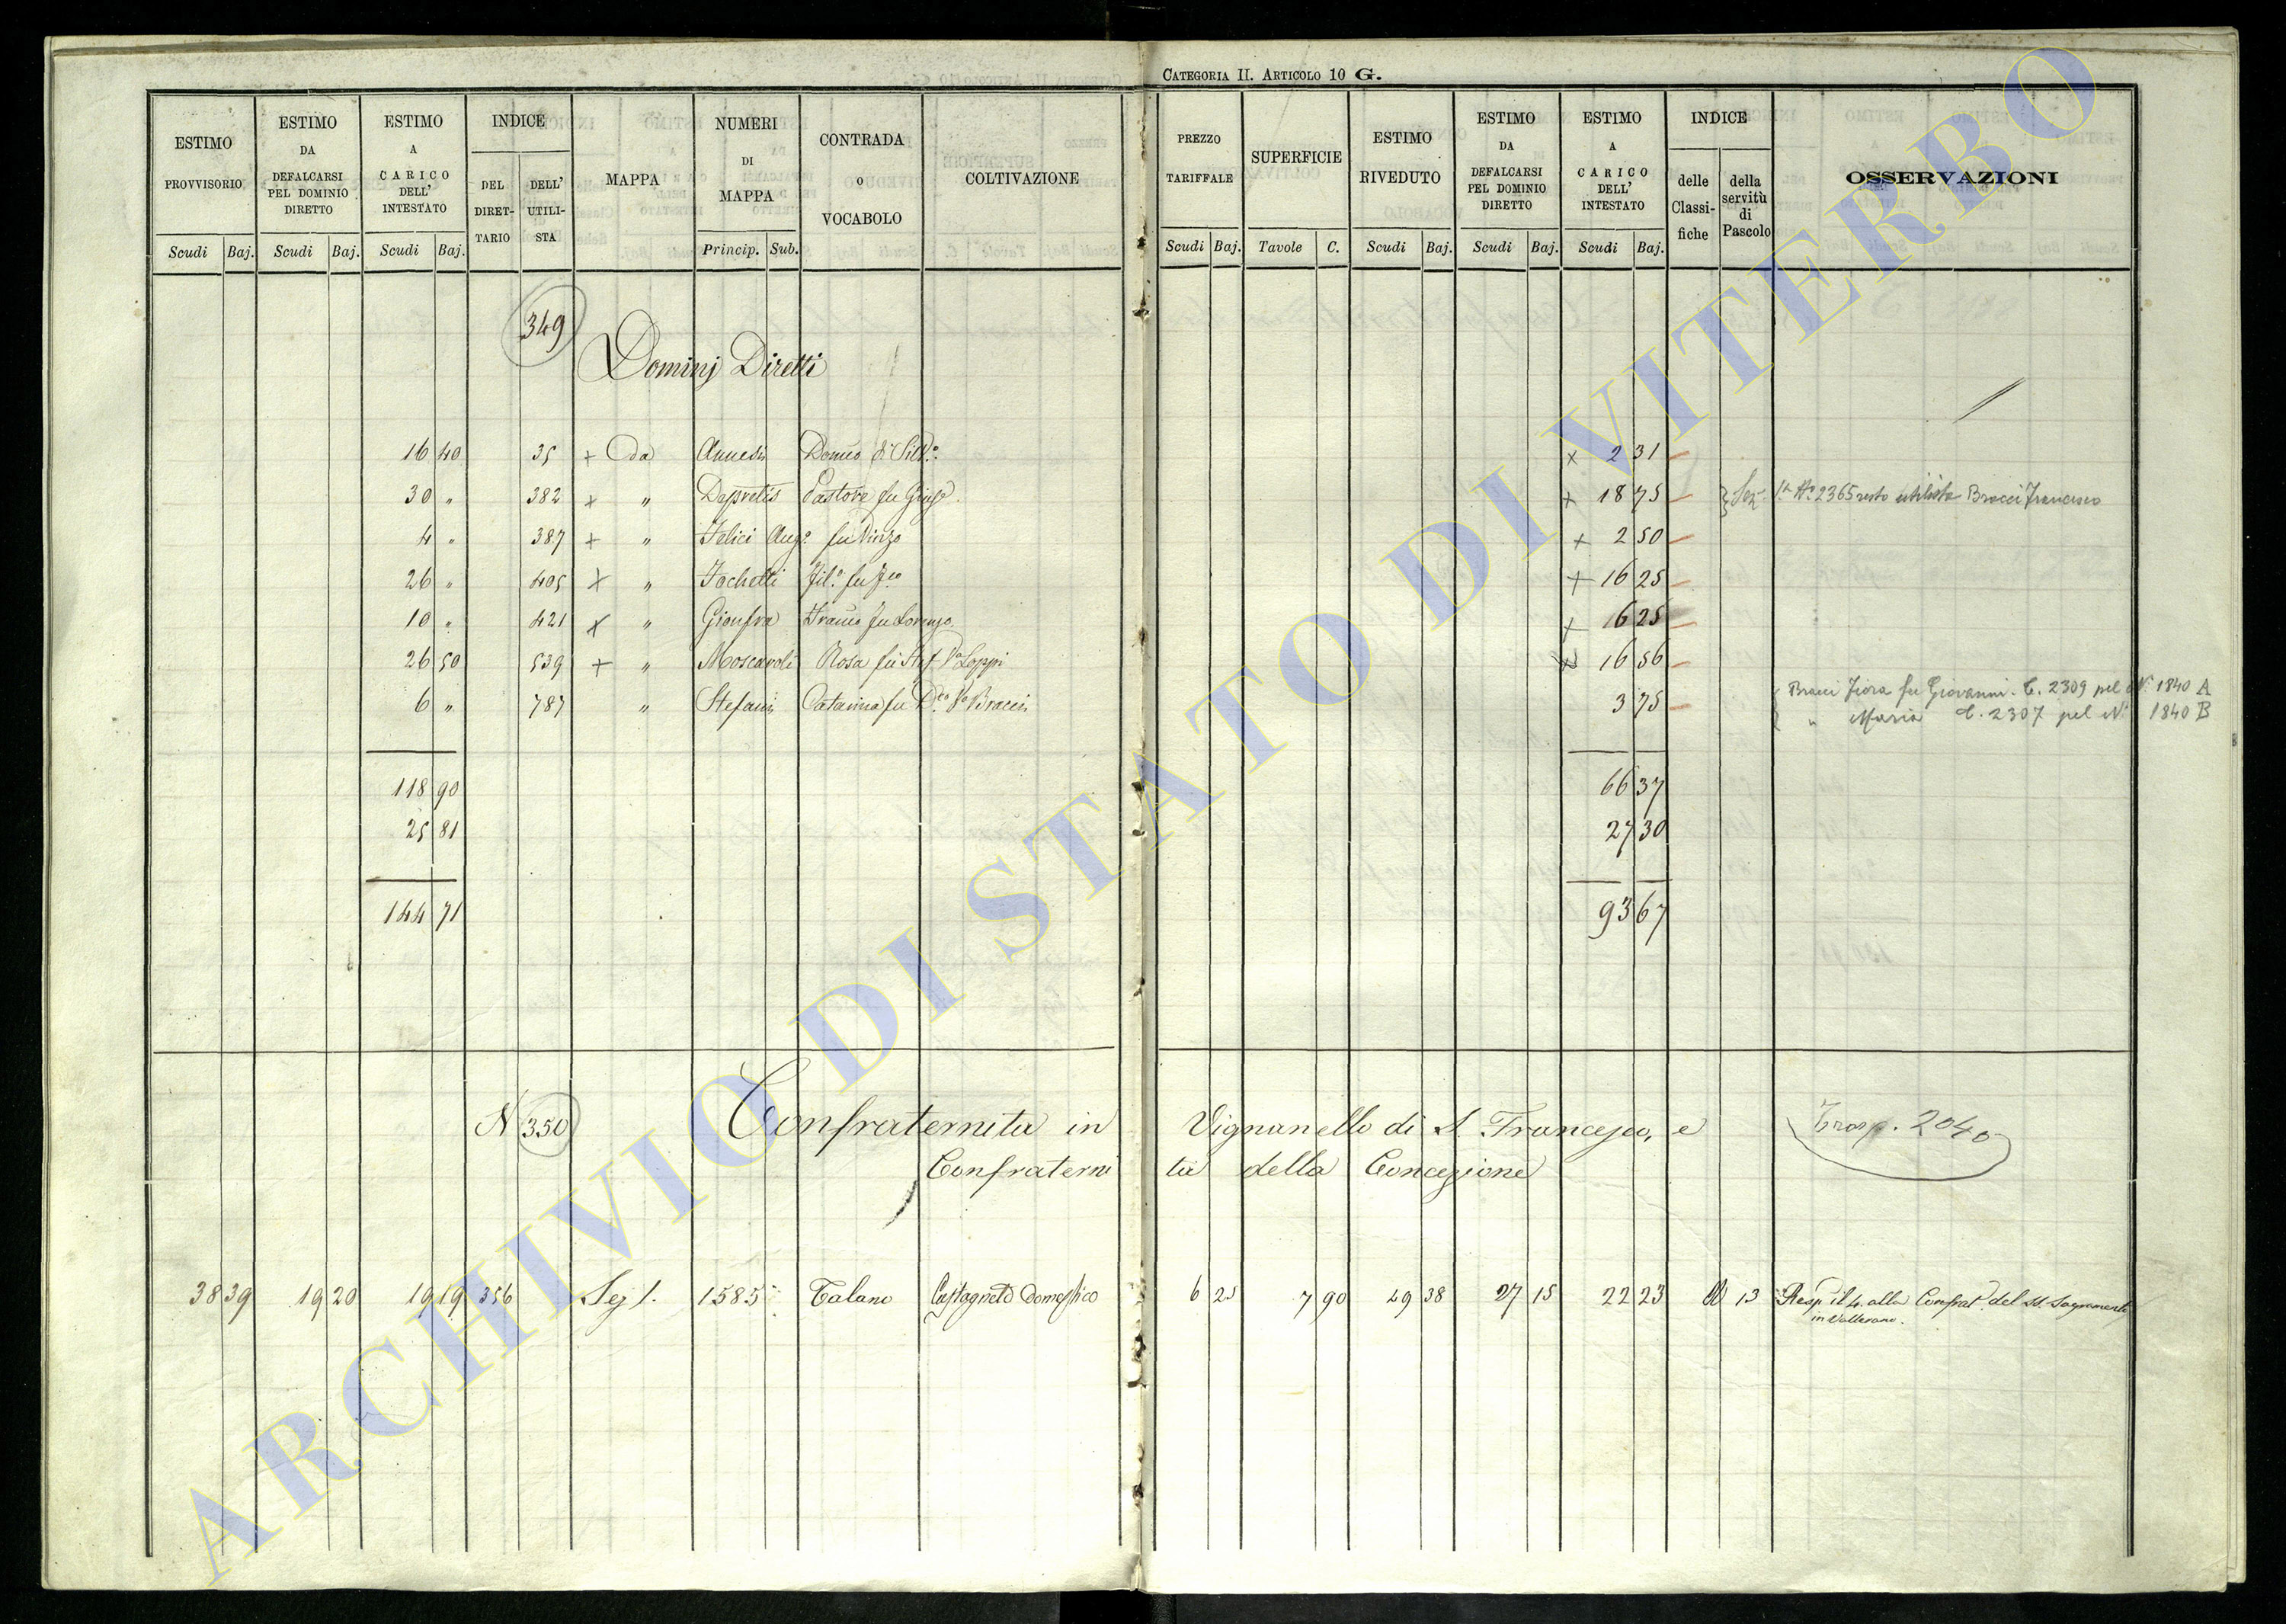 CATEGORIA II. ARTICOLO 10 G.
ESTIMO PROVVISORIO Scudi Baj.
ESTIMO DA DEFALCARSI PEL DOMINIO DIRETTO Scudi Baj.
ESTIMO A CARICO DELL' INTESTATO Scudi Baj.
INDICE DEL DIRET-TARIO DELL' UTILI-STA
MAPPA
NUMERI DI MAPPA Princip. Sub.
CONTRADA O VOCABOLO
COLTIVAZIONE
PREZZO TARIFFALE Scudi Baj.
SUPERFICIE Tavole C.
ESTIMO RIVEDUTO Scudi Baj.
ESTIMO DA DEFALCARSI PEL DOMINIO DIRETTO Scudi Baj.
ESTIMO A CARICO DELL' INTESTATO Scudi Baj.
INDICE delle Classi-fiche della servitù di Pascolo
OSSERVAZIONI
349
Dominj Diretti
16 40 35 + da Annesi Domco di Silv.o x 2 31
30 " 382 x " Depretis Pastore fu Giusp. + 18 75 N.o 2365 resto utilista Bracci Francesco
4 " 387 + " Felici Aug.o fu Vinzo x 2 50
26 " 405 x " Fochetti Fil.o fu + 16 25
10 " 421 x " Gionfra Franco fu Lorenzo + 16 25
26 50 539 + " Moscaroli Rosa fu V.a Loppi 16 56
6 " 787 " Stefani Catarina fu V.a Bracci 3 75 Bracci Fiora fu Giovanni. C. 2309 pel N.o 1840 A
" Maria C. 2307 pel N.o 1840 B
118 90 66 37
25 81 27 30
144 71 93 67
N 350 Confraternita in Vignanello di S. Francesco, e Trasp. 2040
Confraterni ta della Concezione
38 39 19 20 19 19 356 Sez 1. 1585 Talano Castagneto Domestico 6 25 7 90 49 38 27 15 22 23 13 Resp. il 4. alla Confrat. del SS. Sagramento
in Vallerano.
ARCHIVIO DI STATO DI VITERBO